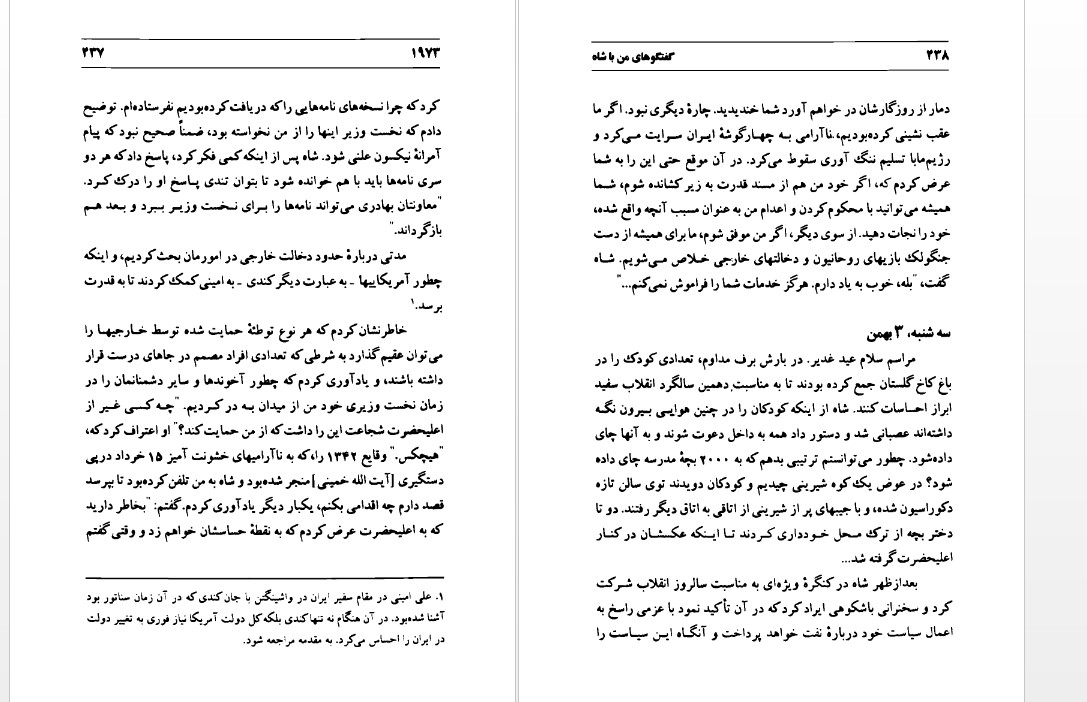 ۱۹۷۳ ۴۳۷
کرد که چرا نسخه‌های نامه‌هایی را که دریافت کرده‌بودیم نفرستاده‌ام. توضیح
دادم که نخست وزیر اینها را از من نخواسته بود، ضمناً صحیح نبود که پیام
آمرانهٔ نیکسون علنی شود. شاه پس از اینکه کمی فکر کرد، پاسخ داد که هر دو
سری نامه‌ها باید با هم خوانده شود تا بتوان تندی پاسخ او را درک کرد.
"معاونتان بهادری می‌تواند نامه‌ها را برای نخست وزیر ببرد و بعد هم
بازگرداند."
مدتی دربارهٔ حدود دخالت خارجی در امورمان بحث کردیم، و اینکه
چطور آمریکاییها ـ به عبارت دیگر کندی ـ به امینی کمک کردند تا به قدرت
برسد.۱
خاطرنشان کردم که هر نوع توطئهٔ حمایت شده توسط خارجیها را
می‌توان عقیم گذارد به شرطی که تعدادی افراد مصمم در جاهای درست قرار
داشته باشند، و یادآوری کردم که چطور آخوندها و سایر دشمنانمان را در
زمان نخست وزیری خود من از میدان به در کردیم. "چه کسی غیر از
اعلیحضرت شجاعت این را داشت که از من حمایت کند؟" او اعتراف کرد که،
"هیچکس." وقایع ۱۳۴۲ را، که به ناآرامیهای خشونت آمیز ۱۵ خرداد در پی
دستگیری [آیت الله خمینی] منجر شده‌بود و شاه به من تلفن کرده‌بود تا بپرسد
قصد دارم چه اقدامی بکنم، یکبار دیگر یادآوری کردم. گفتم: "بخاطر دارید
که به اعلیحضرت عرض کردم که به نقطهٔ حساسشان خواهم زد و وقتی گفتم
۱. علی امینی در مقام سفیر ایران در واشینگتن با جان کندی که در آن زمان سناتور بود
آشنا شده‌بود. در آن هنگام نه تنها کندی بلکه کل دولت آمریکا نیاز فوری به تغییر دولت
در ایران را احساس می‌کرد. به مقدمه مراجعه شود.
۴۳۸ گفتگوهای من با شاه
دمار از روزگارشان در خواهم آورد شما خندیدید. چارهٔ دیگری نبود. اگر ما
عقب نشینی کرده‌بودیم، ناآرامی به چهارگوشهٔ ایران سرایت می‌کرد و
رژیم‌مابا تسلیم ننگ آوری سقوط می‌کرد. در آن موقع حتی این را به شما
عرض کردم که، اگر خود من هم از مسند قدرت به زیر کشانده شوم، شما
همیشه می‌توانید با محکوم کردن و اعدام من به عنوان مسبب آنچه واقع شده،
خود را نجات دهید. از سوی دیگر، اگر من موفق شوم، ما برای همیشه از دست
جنگولک بازیهای روحانیون و دخالتهای خارجی خلاص می‌شویم. شاه
گفت، "بله، خوب به یاد دارم. هرگز خدمات شما را فراموش نمی‌کنم..."
سه شنبه، ۳ بهمن
مراسم سلام عید غدیر. در بارش برف مداوم، تعدادی کودک را در
باغ کاخ گلستان جمع کرده بودند تا به مناسبت دهمین سالگرد انقلاب سفید
ابراز احساسات کنند. شاه از اینکه کودکان را در چنین هوایی بیرون نگه
داشته‌اند عصبانی شد و دستور داد همه به داخل دعوت شوند و به آنها چای
داده‌شود. چطور می‌توانستم ترتیبی بدهم که به ۲۰۰۰ بچهٔ مدرسه چای داده
شود؟ در عوض یک کوه شیرینی چیدیم و کودکان دویدند توی سالن تازه
دکوراسیون شده، و با جیبهای پر از شیرینی از اتاقی به اتاق دیگر رفتند. دو تا
دختر بچه از ترک محل خودداری کردند تا اینکه عکسشان در کنار
اعلیحضرت گرفته شد...
بعدازظهر شاه در کنگرهٔ ویژه‌ای به مناسبت سالروز انقلاب شرکت
کرد و سخنرانی باشکوهی ایراد کرد که در آن تأکید نمود با عزمی راسخ به
اعمال سیاست خود دربارهٔ نفت خواهد پرداخت و آنگاه این سیاست را